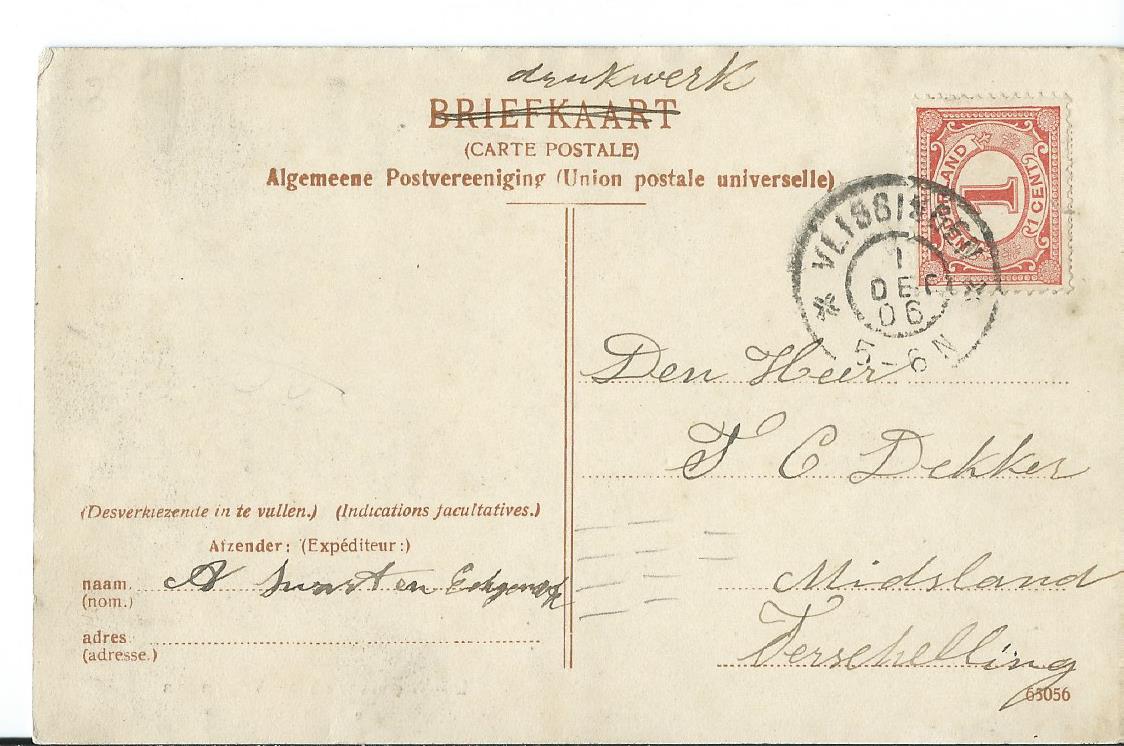 drukwerk
BRIEFKAART
(CARTE POSTALE)
Algemeene Postvereeniging (Union postale universelle)
NEDERLAND
1
1 CENT
VLISSINGEN
1
DEC
06
5-6 N
Den Heer
T C Dekker
Midsland
Terschelling
(Desverkiezende in te vullen.) (Indications facultatives.)
Afzender: (Expéditeur:)
naam. A Swart en Echgenoot
(nom.)
adres
(adresse.)
65056